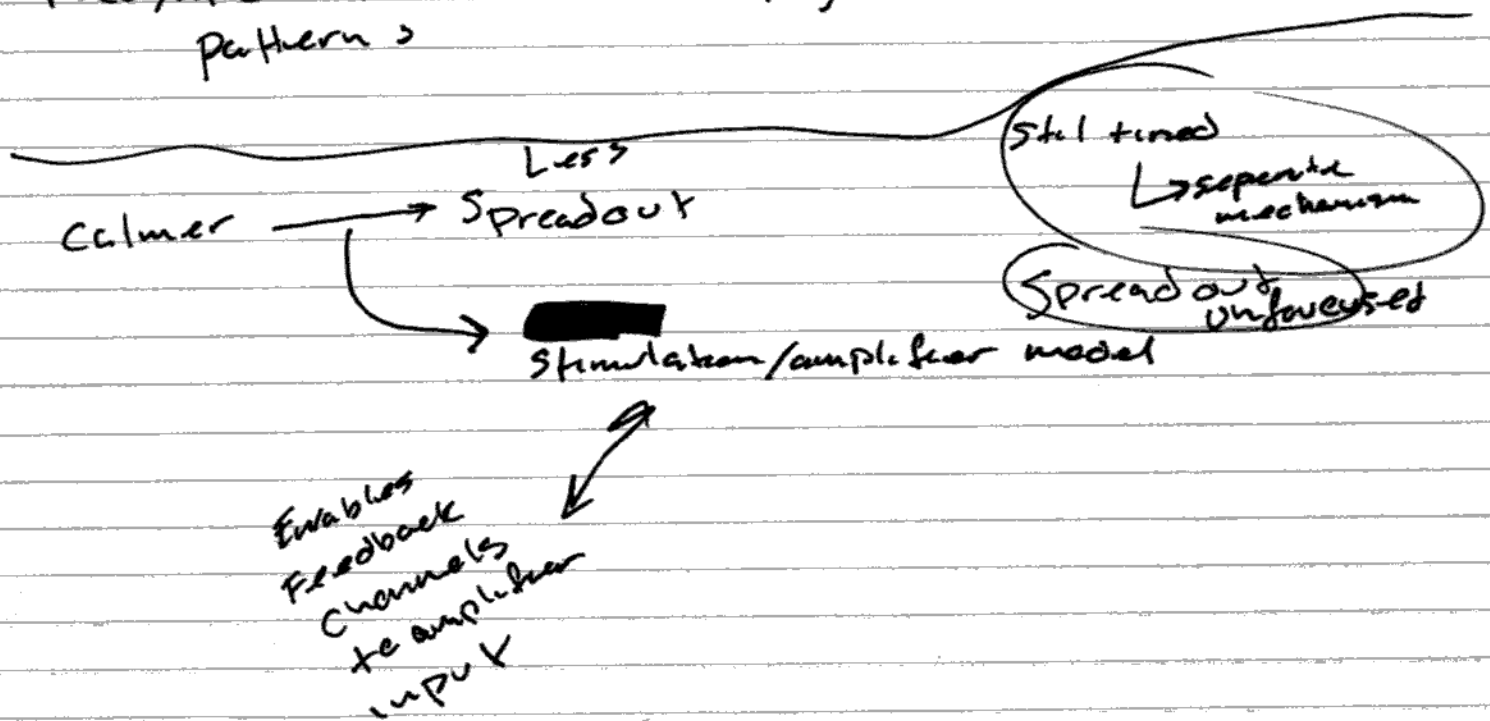 patterns
Less
Calmer → Spreadout
Stil timed
↳ seperate
mechanism
Spreadout
unfocused
Stimulation/amplifier model
Enables
Feedback
Channels
to amplifier
input